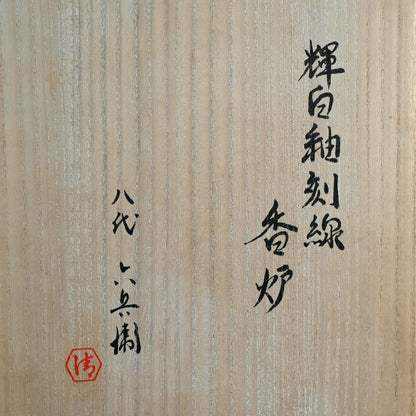 輝白釉刻線
香炉
八代 六兵衛
清